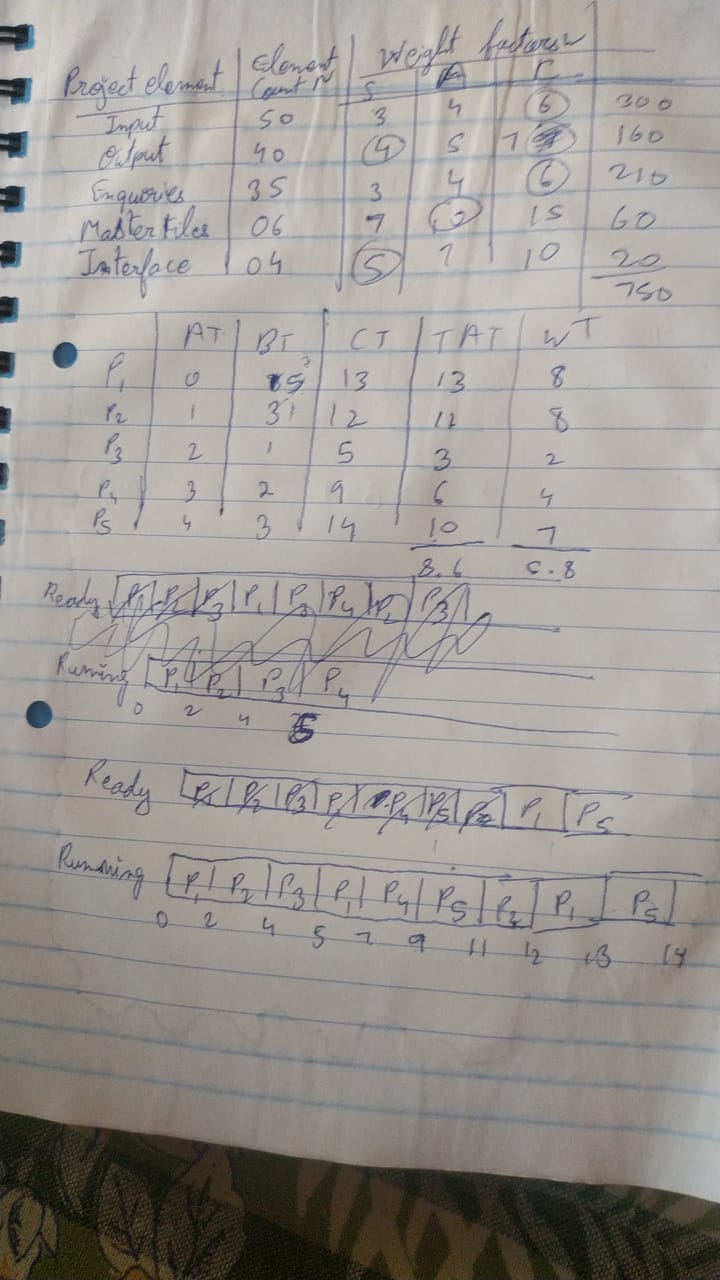 Weight factors
Project element Element Count N S A C
Input 50 3 4 6 300
Output 40 4 5 7 160
Enquiries 35 3 4 6 210
Master Files 06 7 10 15 60
Interface 04 5 7 10 20
750
AT BT CT TAT WT
P1 0 5 3 13 13 8
P2 1 3 1 12 11 8
P3 2 1 5 3 2
P4 3 2 9 6 4
P5 4 3 14 10 7
8.6 5.8
Ready P1 P2 P3 P1 P4 P2
Running P1 P2 P3 P4
0 2 4 5
Ready P1 P2 P3 P1 P4 P5 P2 P1 P5
Running P1 P2 P3 P1 P4 P5 P2 P1 P5
0 2 4 5 7 9 11 12 13 14